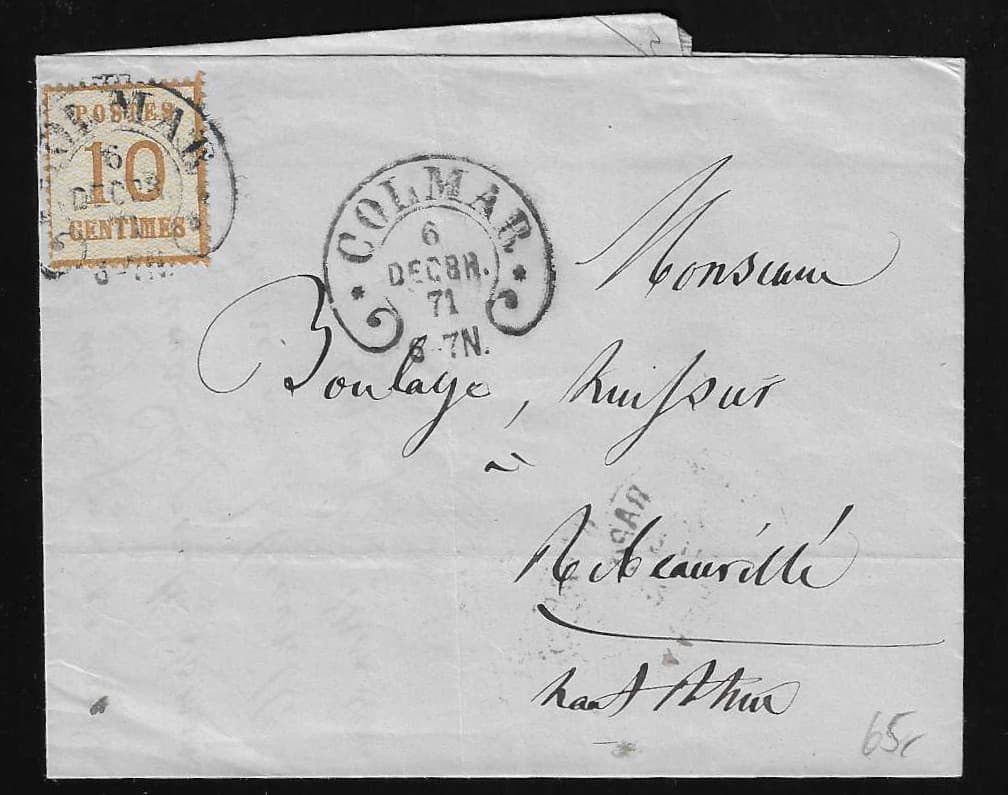 POSTES
10
CENTIMES
COLMAR
6
DECBR.
COLMAR
6
DECBR.
71
6-7N.
Monsieur
Boulage, huissier
à
Ribeauvillé
haut Rhin
65